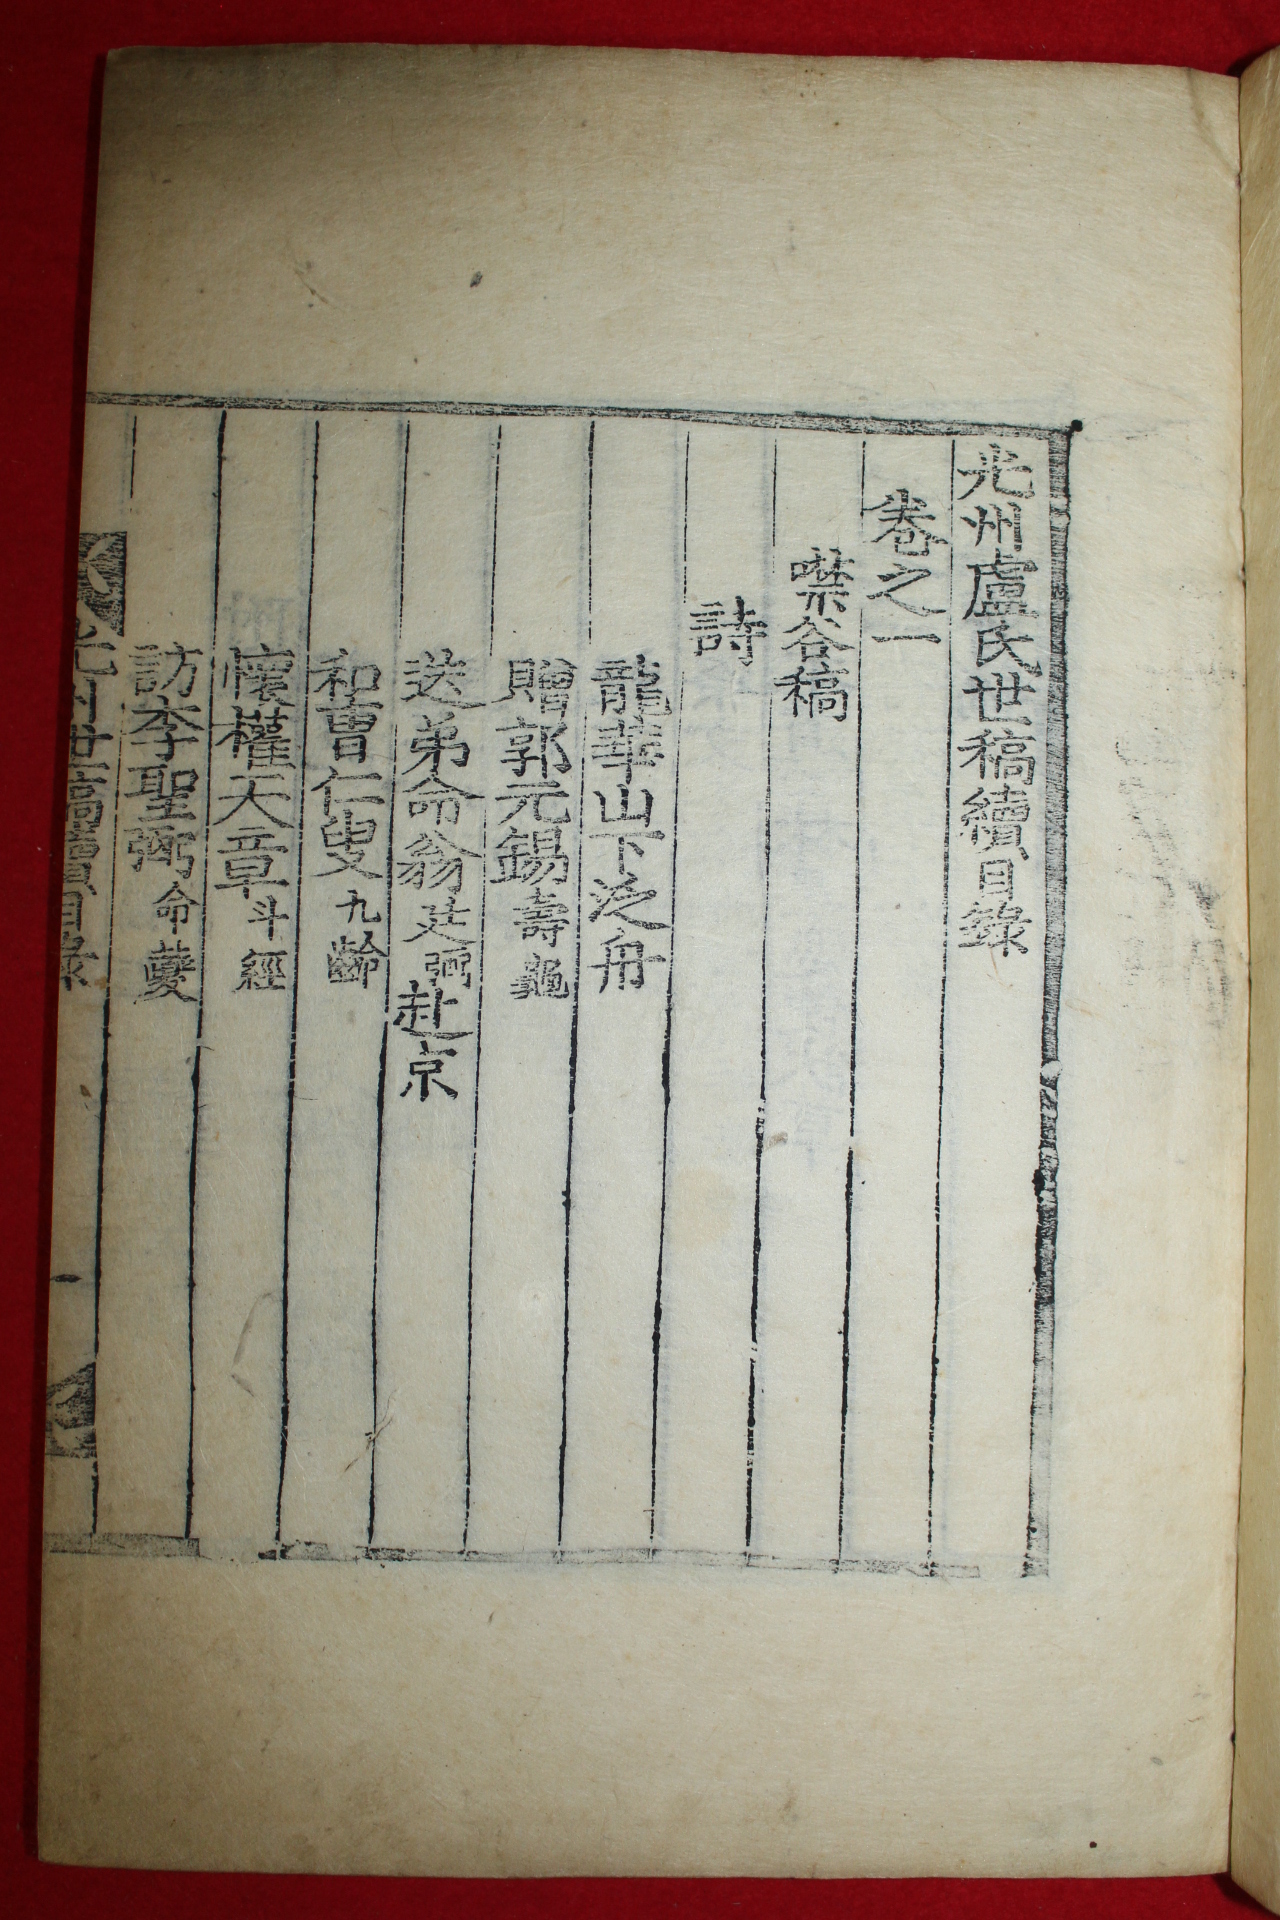 光州盧氏世稿續目錄
卷之一
噤谷稿
詩
龍華山下泛舟
贈郭元錫壽龜
送弟命翁廷弼赴京
和曹仁叟九齡
懷權天章斗經
訪李聖弼命夔
光州世稿續目錄
一